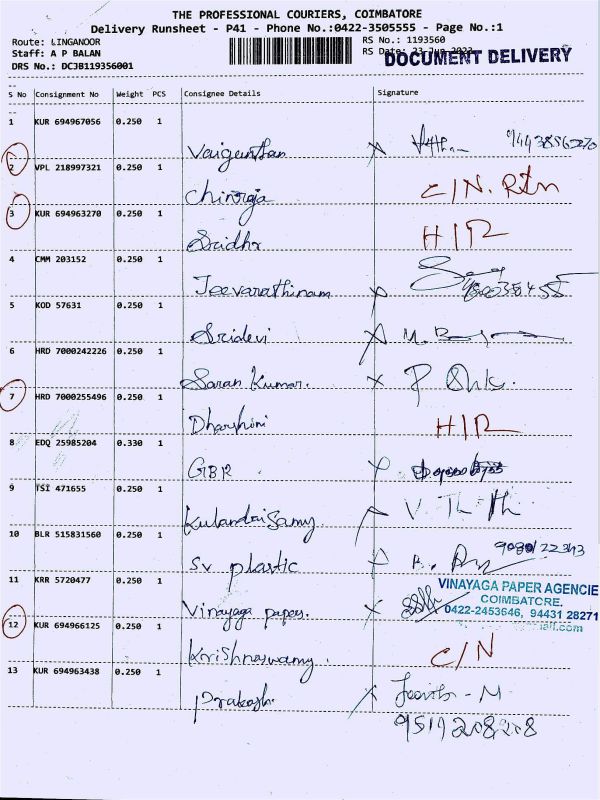 THE PROFESSIONAL COURIERS, COIMBATORE
Delivery Runsheet - P41 - Phone No.:0422-3505555 - Page No.:1
Route: LINGANOOR
RS No.: 1193560
Staff: A P BALAN
RS Date: 23-Jun-2023
DOCUMENT DELIVERY
DRS No.: DCJB119356001
S No Consignment No Weight PCS Consignee Details Signature
1 KUR 694967056 0.250 1
Vaigunthan
2 VPL 218997321 0.250 1
Chinraja C/N. Rtn
3 KUR 694963270 0.250 1
Sridhr H/R
4 CMM 203152 0.250 1
Jeevarathinam
5 KOD 57631 0.250 1
Sridevi
6 HRD 7000242226 0.250 1
Saran Kumar.
7 HRD 7000255496 0.250 1
Dharshini H/R
8 EDQ 25985204 0.330 1
GBR
9 TSI 471655 0.250 1
Kulandaisamy
10 BLR 515831560 0.250 1
Sv plastic
11 KRR 5720477 0.250 1
VINAYAGA PAPER AGENCIE
COIMBATORE.
Vinayaga papers. 0422-2453646, 94431 28271
12 KUR 694966125 0.250 1
Krishnaswamy. C/N
13 KUR 694963438 0.250 1
Prakash.